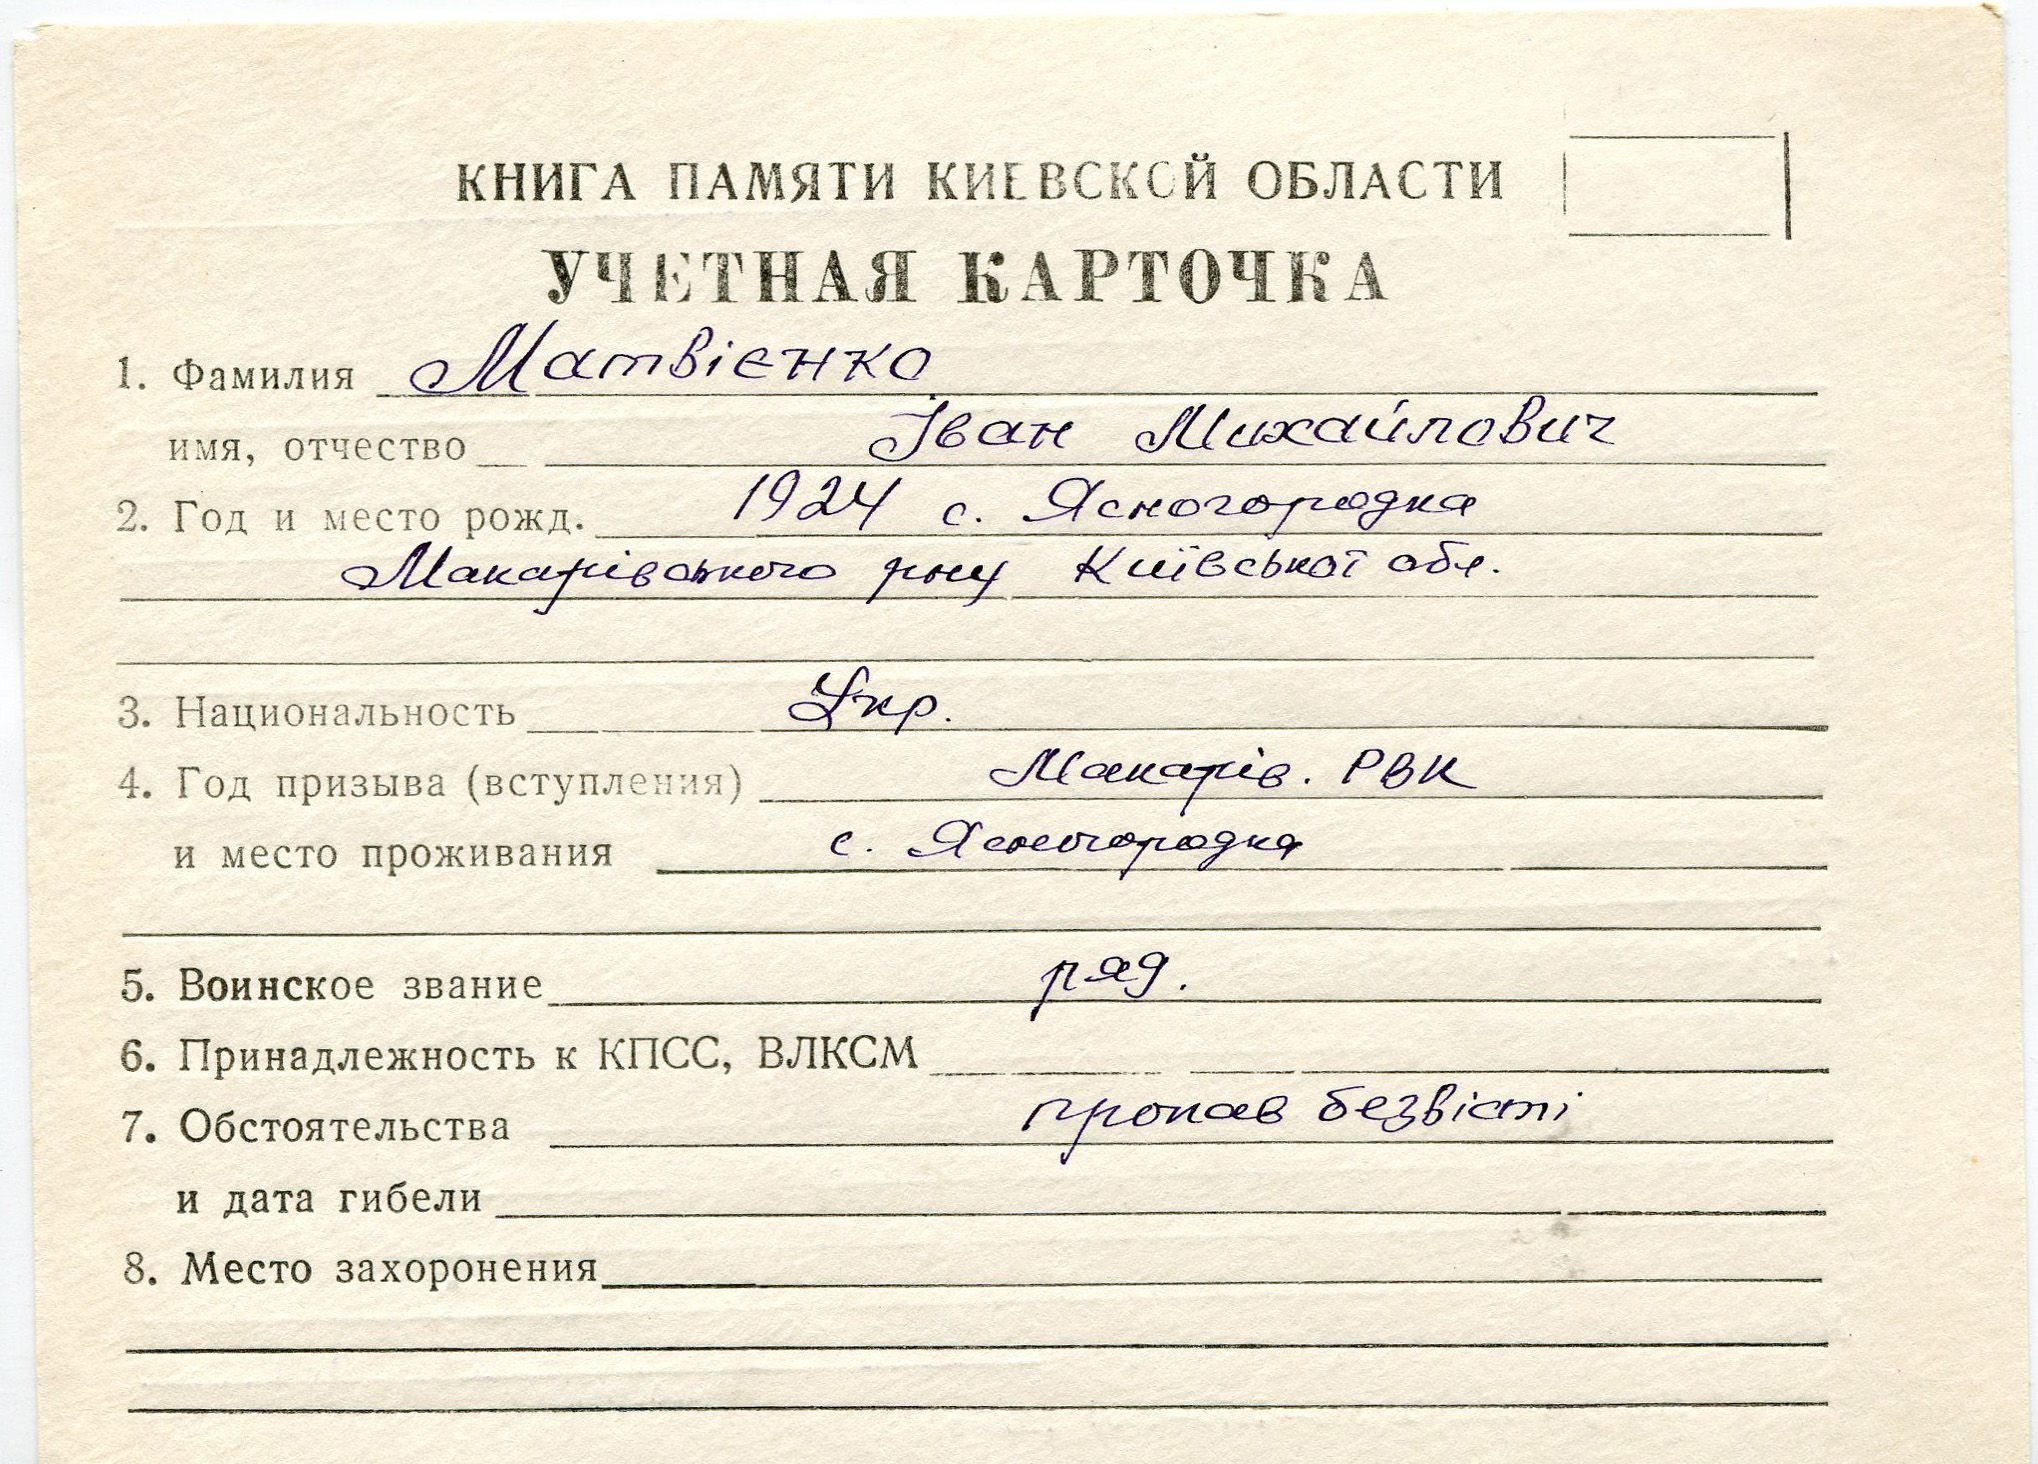 КНИГА ПАМЯТИ КИЕВСКОЙ ОБЛАСТИ
УЧЕТНАЯ КАРТОЧКА
1. Фамилия Матвієнко
имя, отчество Іван Михайлович
2. Год и место рожд. 1924 с. Ясногородка
Макарівського рну Київської обл.
3. Национальность Укр.
4. Год призыва (вступления) Макарів. РВК
и место проживания с. Ясногородка
5. Воинское звание ряд.
6. Принадлежность к КПСС, ВЛКСМ
7. Обстоятельства пропав безвісті
и дата гибели
8. Место захоронения